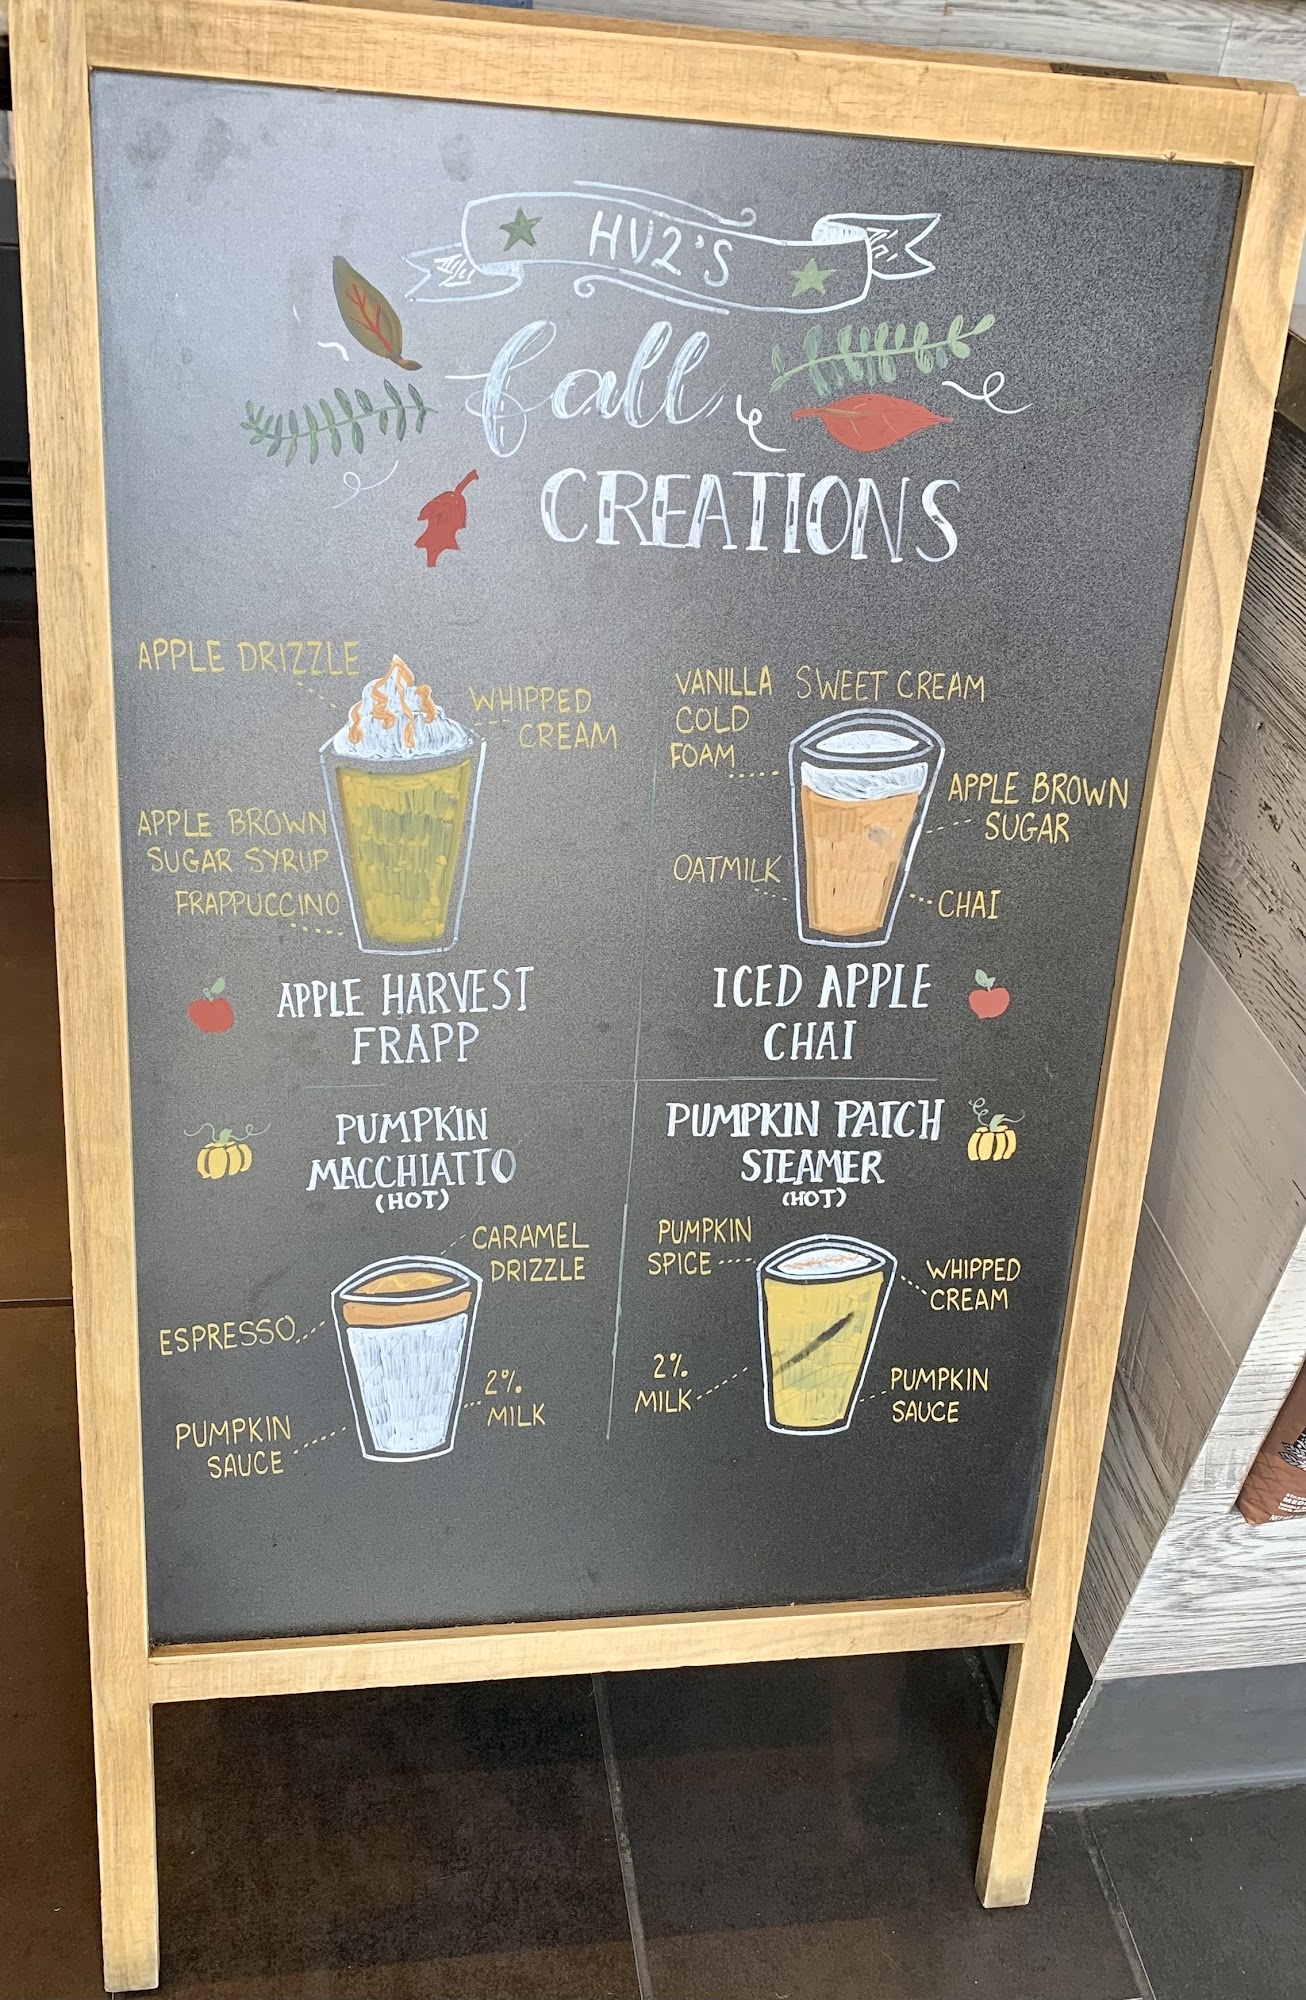 HV2'S
fall
CREATIONS
APPLE DRIZZLE
WHIPPED
CREAM
APPLE BROWN
SUGAR SYRUP
FRAPPUCCINO
APPLE HARVEST
FRAPP
VANILLA SWEET CREAM
COLD
FOAM
APPLE BROWN
SUGAR
OATMILK
CHAI
ICED APPLE
CHAI
PUMPKIN
MACCHIATTO
(HOT)
CARAMEL
DRIZZLE
ESPRESSO
2%
MILK
PUMPKIN
SAUCE
PUMPKIN PATCH
STEAMER
(HOT)
PUMPKIN
SPICE
WHIPPED
CREAM
2%
MILK
PUMPKIN
SAUCE